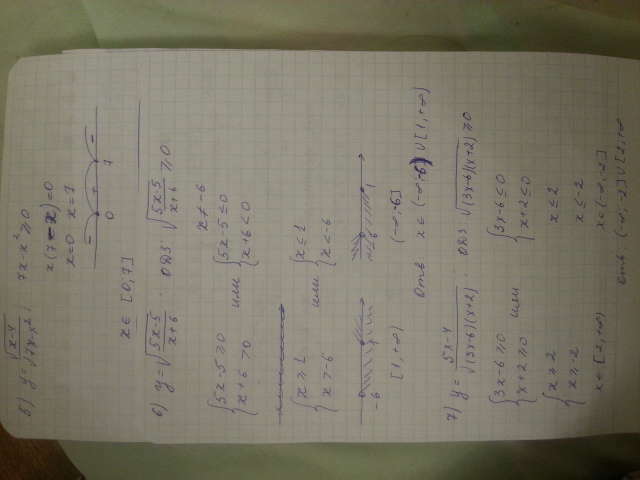 5) y = √(x-4) / √(7x-x²) ; 7x-x² ≥ 0
x(7-x)=0
x=0 x=7
- + -
0 7
x ∈ [0,7]
6) y = √((5x-5)/(x+6)) ; ОДЗ √((5x-5)/(x+6)) ≥ 0
x ≠ -6
{5x-5 ≥ 0 или {5x-5 ≤ 0
{x+6 > 0 {x+6 < 0
{x ≥ 1 или {x ≤ 1
{x > -6 {x < -6
-6 1
[1,+∞) (-∞,-6]
Отв x ∈ (-∞,-6) ∪ [1,+∞)
7) y = (5x-4) / √((3x-6)(x+2)) ; ОДЗ √((3x-6)(x+2)) ≥ 0
{3x-6 ≥ 0 или {3x-6 ≤ 0
{x+2 ≥ 0 {x+2 ≤ 0
{x ≥ 2 x ≤ 2
{x ≥ -2 x ≤ -2
x ∈ [2,+∞) x ∈ (-∞,-2]
Отв (-∞,-2] ∪ [2,+∞